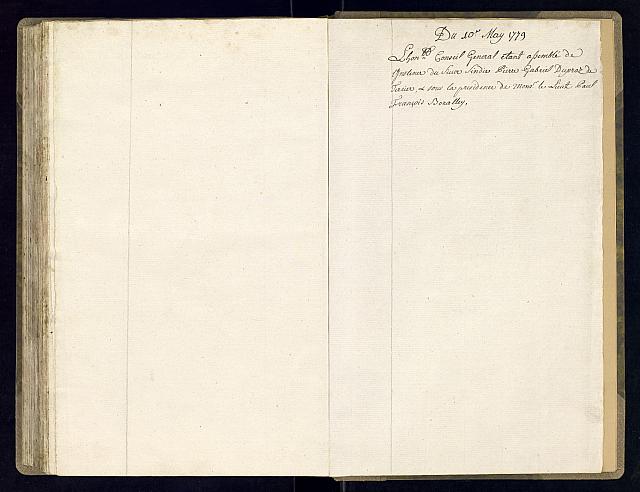 Du 10e May 1779
Lhonble Conseil General etant assemblé de
du Sieur Sindic Pierre Gabriel Dupraz de
& sous la présidence de Monsr le Lieut Paul
François Boralley,